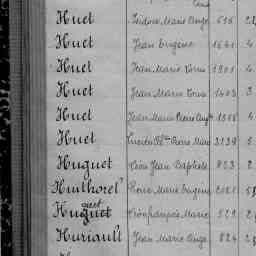 Huet Isidore Marie Ange 616
Huet Jean Eugène 1641 4
Huet Jean Marie 1901 4
Huet Jean Marie 1403 3
Huet Jean Marie Pierre Aug 1318 4
Huet Lucien Pierre Marie 3139 5
Huguet Léon Jean Baptiste 823 2
Huithorel Pierre Marie Eugène 2081 51
guet
Huguet Léon François Marie 529 2
Huriault Jean Marie Ange 824 23